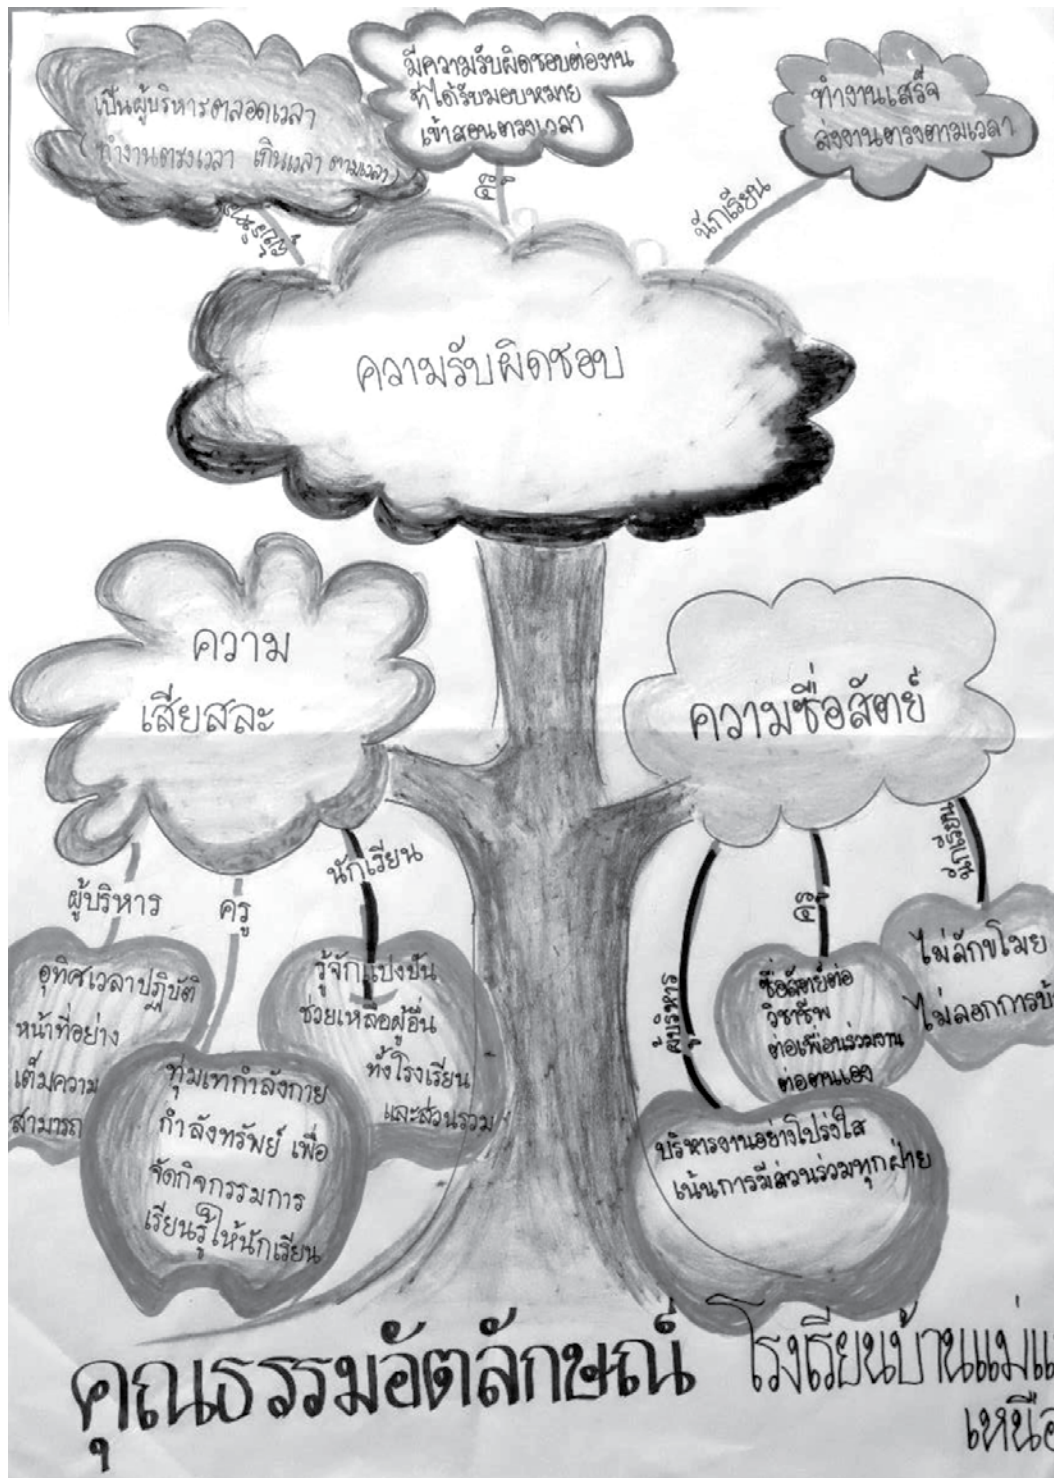 เป็นผู้บริหารตลอดเวลา
ทำงานตรงเวลา เกินเวลา ตามเวลา
มีความรับผิดชอบต่องาน
ที่ได้รับมอบหมาย
เข้าสอนตรงเวลา
ทำงานเสร็จ
ส่งงานตรงตามเวลา
ครู
นักเรียน
ความรับผิดชอบ
ความ
เสียสละ
ความซื่อสัตย์
ผู้บริหาร
ครู
นักเรียน
ผู้บริหาร
ครู
นักเรียน
อุทิศเวลาปฏิบัติ
หน้าที่อย่าง
เต็มความ
สามารถ
ทุ่มเทกำลังกาย
กำลังทรัพย์ เพื่อ
จัดกิจกรรมการ
เรียนรู้ให้นักเรียน
รู้จักแบ่งปัน
ช่วยเหลือผู้อื่น
ทั้งโรงเรียน
และส่วนรวม
บริหารงานอย่างโปร่งใส
เน้นการมีส่วนร่วมทุกฝ่าย
ซื่อสัตย์ต่อ
วิชาชีพ
ต่อเพื่อนร่วมงาน
ต่อตนเอง
ไม่ลักขโมย
ไม่ลอกการบ้
คุณธรรมอัตลักษณ์ โรงเรียนบ้านแม่แ
เหนือ